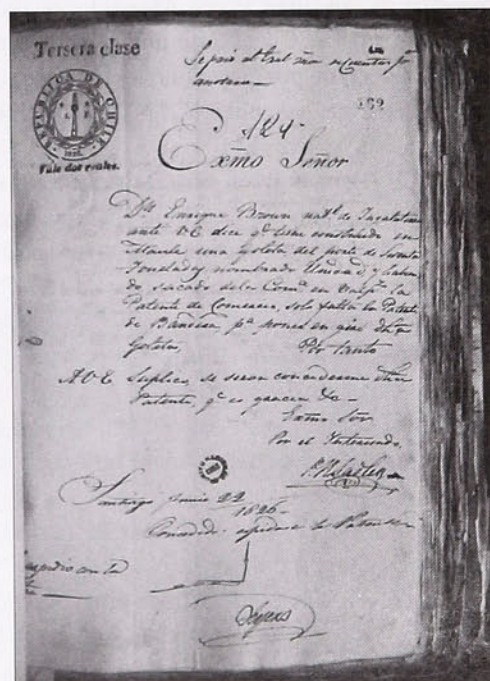 Tersera clase
Se pasó al Tral ma de Cuentas pa
anotarse
REPUBLICA DE CHILE
Vale dos reales.
169
124
Exmo Señor
Dn Enrique Brown natl de Ynglaterra
ante VE dice qe tiene construido en
Maule una goleta del porte de
Toneladas nombrada Unidad, y haben-
do sacado dela Coma en Valpo la
Patente de Comercio, solo falta la Patente
de Bandera pa poner en giro dha
Goleta,
Por tanto
A V.E. Suplico, se sirva concederme dha
Patente, qe es gracia &c
Exmo Sor
Por el Interesado.
Santiago Junio 22
1826
Concedido espidase la Patente